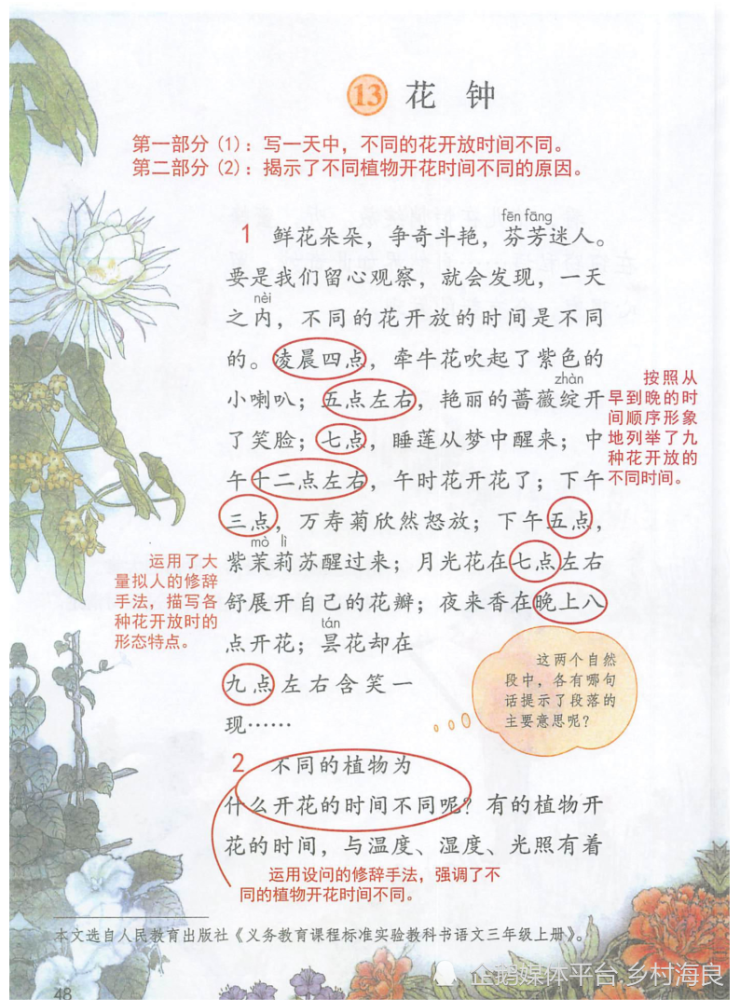 13 花 钟
第一部分(1)：写一天中，不同的花开放时间不同。
第二部分(2)：揭示了不同植物开花时间不同的原因。
fēn fāng
1 鲜花朵朵，争奇斗艳，芬芳迷人。
要是我们留心观察，就会发现，一天
nèi
之内，不同的花开放的时间是不同
的。凌晨四点，牵牛花吹起了紫色的
zhàn
小喇叭；五点左右，艳丽的蔷薇绽开
了笑脸；七点，睡莲从梦中醒来；中
午十二点左右，午时花开花了；下午
三点，万寿菊欣然怒放；下午五点，
mò lì
紫茉莉苏醒过来；月光花在七点左右
舒展开自己的花瓣；夜来香在晚上八
tán
点开花；昙花却在
九点左右含笑一
现……
按照从
早到晚的时
间顺序形象
地列举了九
种花开放的
不同时间。
运用了大
量拟人的修辞
手法，描写各
种花开放时的
形态特点。
这两个自然
段中，各有哪句
话提示了段落的
主要意思呢？
2 不同的植物为
什么开花的时间不同呢？有的植物开
花的时间，与温度、湿度、光照有着
运用设问的修辞手法，强调了不
同的植物开花时间不同。
本文选自人民教育出版社《义务教育课程标准实验教科书语文三年级上册》。
48
企鹅媒体平台 乡村海良